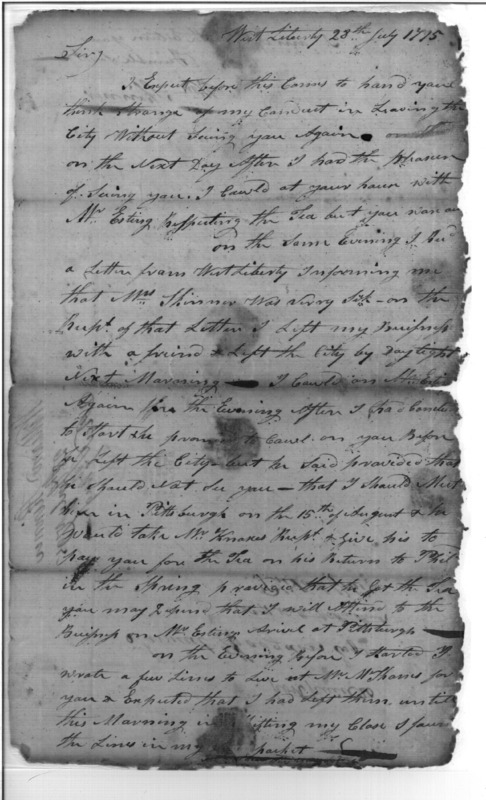 West Liberty 28th July 1795
Sir,
I Expect before this Comes to hand you
think strange of my Conduct in Leaving the
City Without Seeing you Again
on the Next Day After I had the Pleasure
of Seeing you. I Cawld at your house with
Mr Esting Respecting the Tea but you was
on the Same Evening I
a Letter from West Liberty Informing me
that Mrs Skinner Was Verry Sik - on the
Recpt. of that Letter I Left my Buisness
with a friend & Left the City by Daylight
Next Morning - I Cawld on Mr
Again in the Evening After I had Conclud
to Start he promised to Cawl on you Before
he Left the City - but he Said provided that
he Should Not See you - that I Should Meet
him in Pittsburgh on the 15th of August & he
Would take Mr Knoxes Recpt & Give his to
pay you for the Tea on his Return to Phil
in the Spring provided that he Got the Tea
you may Depend that I will Attend to the
Buisness on Mr Estings Arival at Pittsburgh
on the Evening before I Started I
wrote a few Lines to Live at Mr for
you & Expected that I had Left them until
this Morning in Shifting my Close I found
the Lines in my pocket